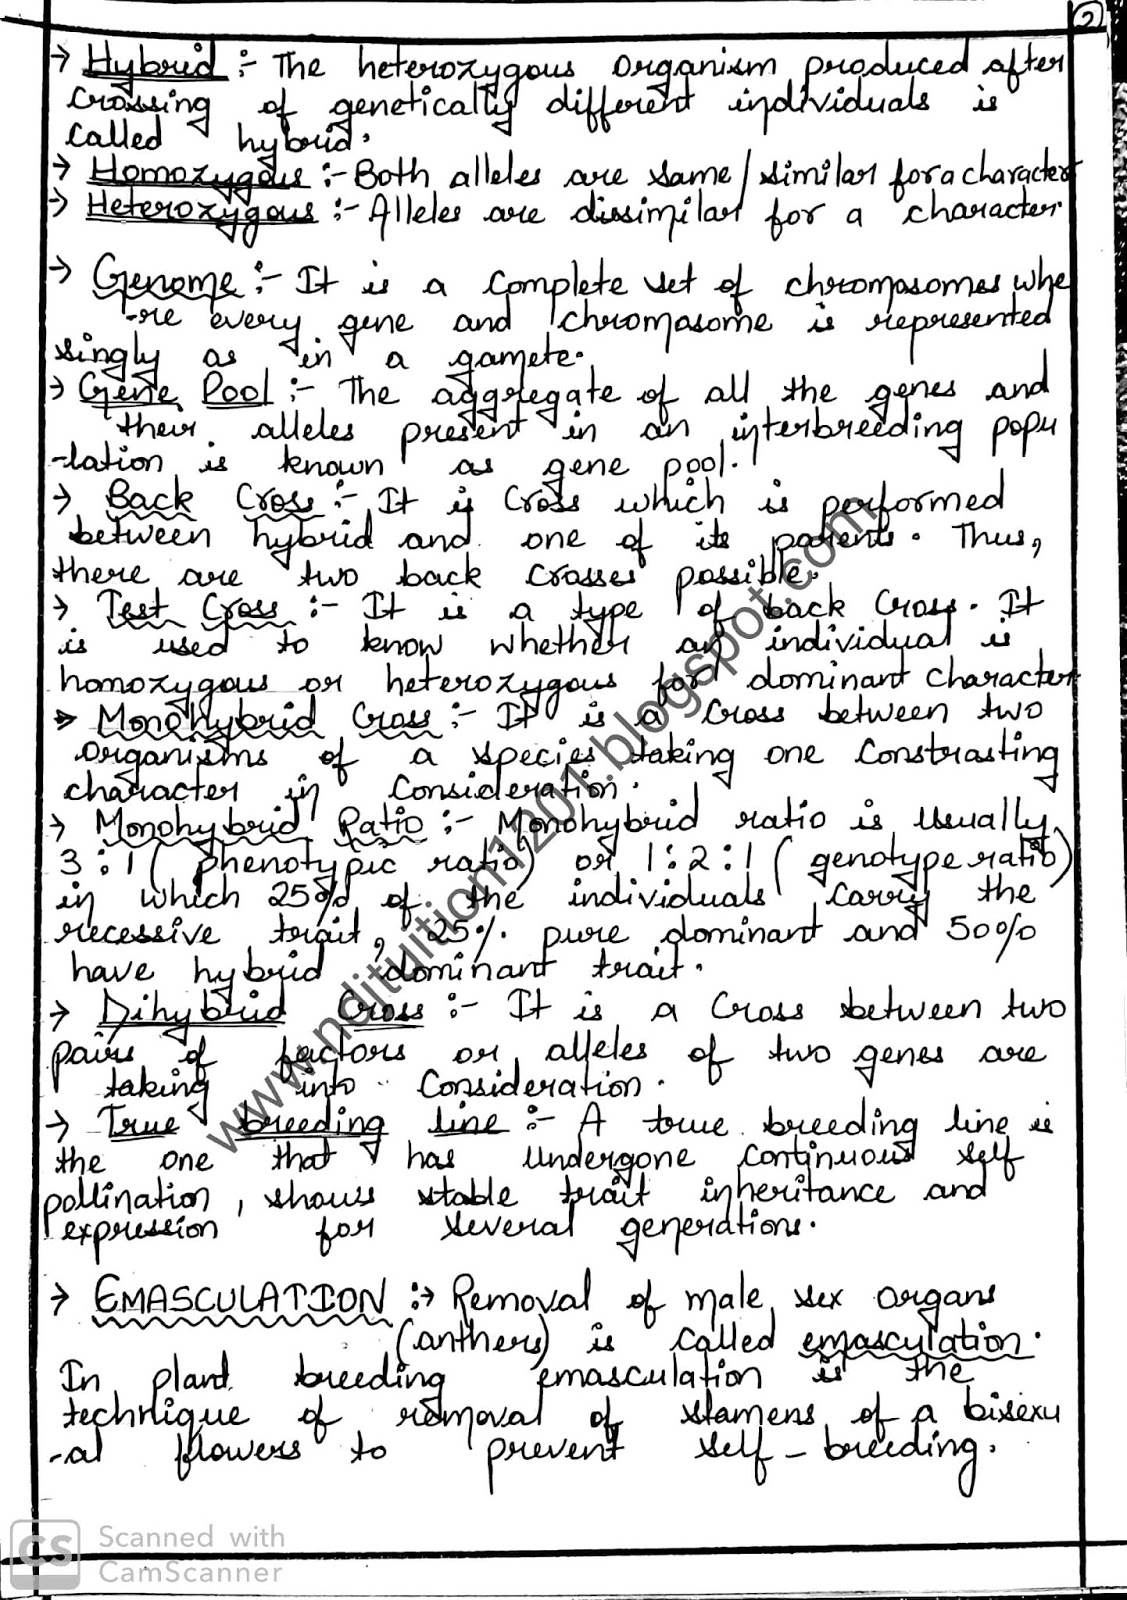 2
→ Hybrid :- The heterozygous organism produced after
crossing of genetically different individuals is
called hybrid.
→ Homozygous :- Both alleles are same / similar for a character
→ Heterozygous :- Alleles are dissimilar for a character.
→ Genome :- It is a complete set of chromosomes whe
-re every gene and chromosome is represented
singly as in a gamete.
→ Gene Pool :- The aggregate of all the genes and
their alleles present in an interbreeding popu
-lation is known as gene pool.
→ Back Cross :- It is Cross which is performed
between hybrid and one of its parents. Thus,
there are two back crosses possible.
→ Test Cross :- It is a type of back Cross. It
is used to know whether an individual is
homozygous or heterozygous for dominant character
→ Monohybrid Cross :- It is a Cross between two
organisms of a species taking one Constrasting
character in Consideration.
→ Monohybrid Ratio :- Monohybrid ratio is usually
3:1 (phenotypic ratio) or 1:2:1 (genotype ratio)
in which 25% of the individuals carry the
recessive trait, 25% pure dominant and 50%
have hybrid dominant trait.
→ Dihybrid Cross :- It is a Cross between two
pairs of factors or alleles of two genes are
taking into Consideration.
→ True breeding line :- A true breeding line is
the one that has undergone continuous self
pollination, shows stable trait inheritance and
expression for several generations.
→ EMASCULATION :→ Removal of male sex organs
(anthers) is called emasculation.
In plant breeding emasculation is the
technique of removal of stamens of a bisexu
-al flowers to prevent self-breeding.
www.ndituition1201.blogspot.com
CS Scanned with
CamScanner